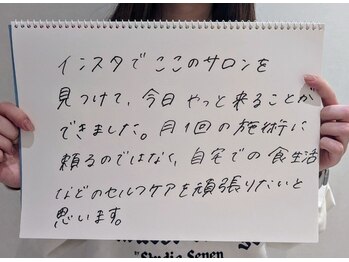 インスタで ここのサロンを
見つけて、今日 やっと来ることが
できました。月1回の施術に
頼るのではなく、自宅での食生活
などのセルフケアを頑張りたいと
思います。
Studio Seven